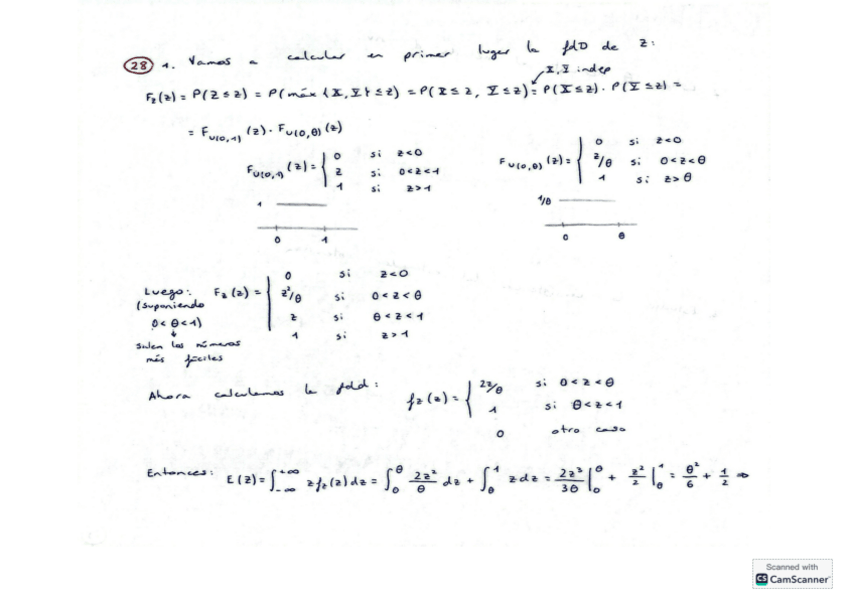 28 1. Vamos a calcular en primer lugar la fdD de Z:
X, Y indep
F_Z(z) = P(Z ≤ z) = P(máx{X, Y} ≤ z) = P(X ≤ z, Y ≤ z) = P(X ≤ z) · P(Y ≤ z) =
= F_U(0,1) (z) · F_U(0,θ) (z)
F_U(0,1) (z) = { 0 si z<0
z si 0<z<1
1 si z>1
F_U(0,θ) (z) = { 0 si z<0
z/θ si 0<z<θ
1 si z>θ
1
0 1
1/θ
0 θ
Luego: F_Z(z) = { 0 si z<0
(suponiendo z²/θ si 0<z<θ
0<θ<1) z si θ<z<1
1 si z>1
salen los números
más fáciles
Ahora calculemos la fdd: f_Z(z) = { 2z/θ si 0<z<θ
1 si θ<z<1
0 otro caso
Entonces: E(Z) = ∫_{-∞}^{+∞} z f_Z(z) dz = ∫_0^θ 2z²/θ dz + ∫_θ^1 z dz = 2z³/3θ |_0^θ + z²/2 |_θ^1 = θ²/6 + 1/2 ⇒
Scanned with
CS CamScanner